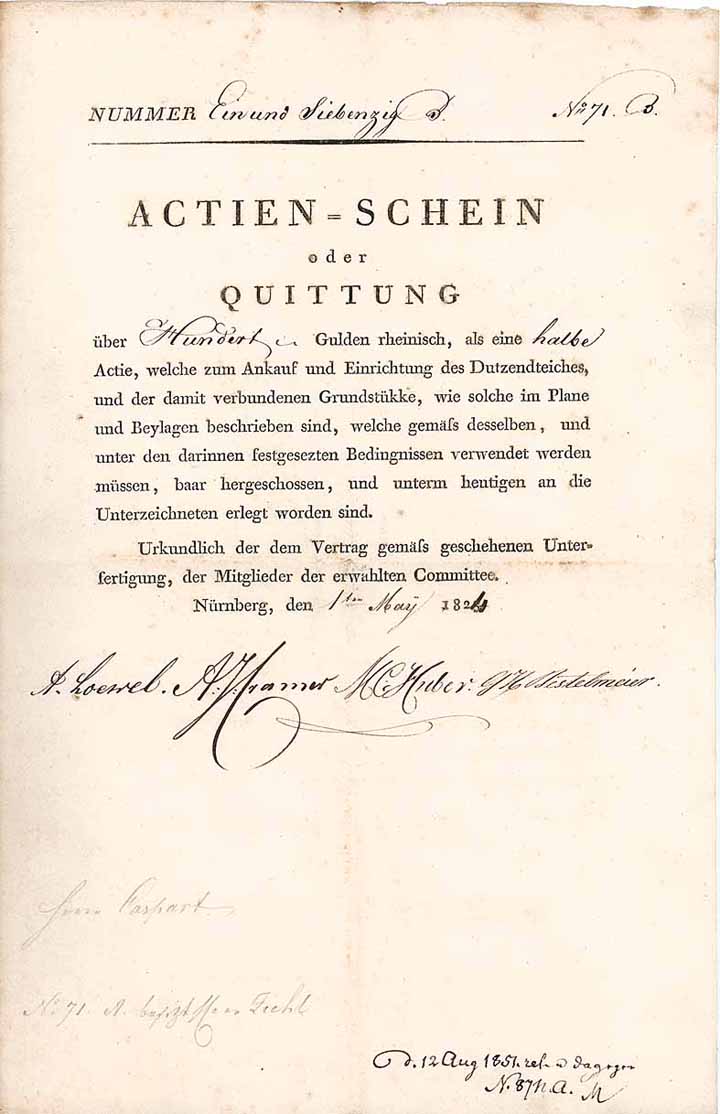 NUMMER Ein und Siebenzig B. No 71. B.
ACTIEN = SCHEIN
oder
QUITTUNG
über Hundert Gulden rheinisch, als eine halbe
Actie, welche zum Ankauf und Einrichtung des Dutzendteiches,
und der damit verbundenen Grundstükke, wie solche im Plane
und Beylagen beschrieben sind, welche gemäſs desselben, und
unter den darinnen festgesezten Bedingnissen verwendet werden
müssen, baar hergeschossen, und unterm heutigen an die
Unterzeichneten erlegt worden sind.
Urkundlich der dem Vertrag gemäſs geschehenen Unter-
fertigung, der Mitglieder der erwählten Committee.
Nürnberg, den 1ten May 1824
A. Loewel. A. J. Cramer M C: Huber. Bestelmeier.
Herrn Caspart
No 71. A. besizt Herr
d. 12 Aug 1851. dagegen
N. A. M